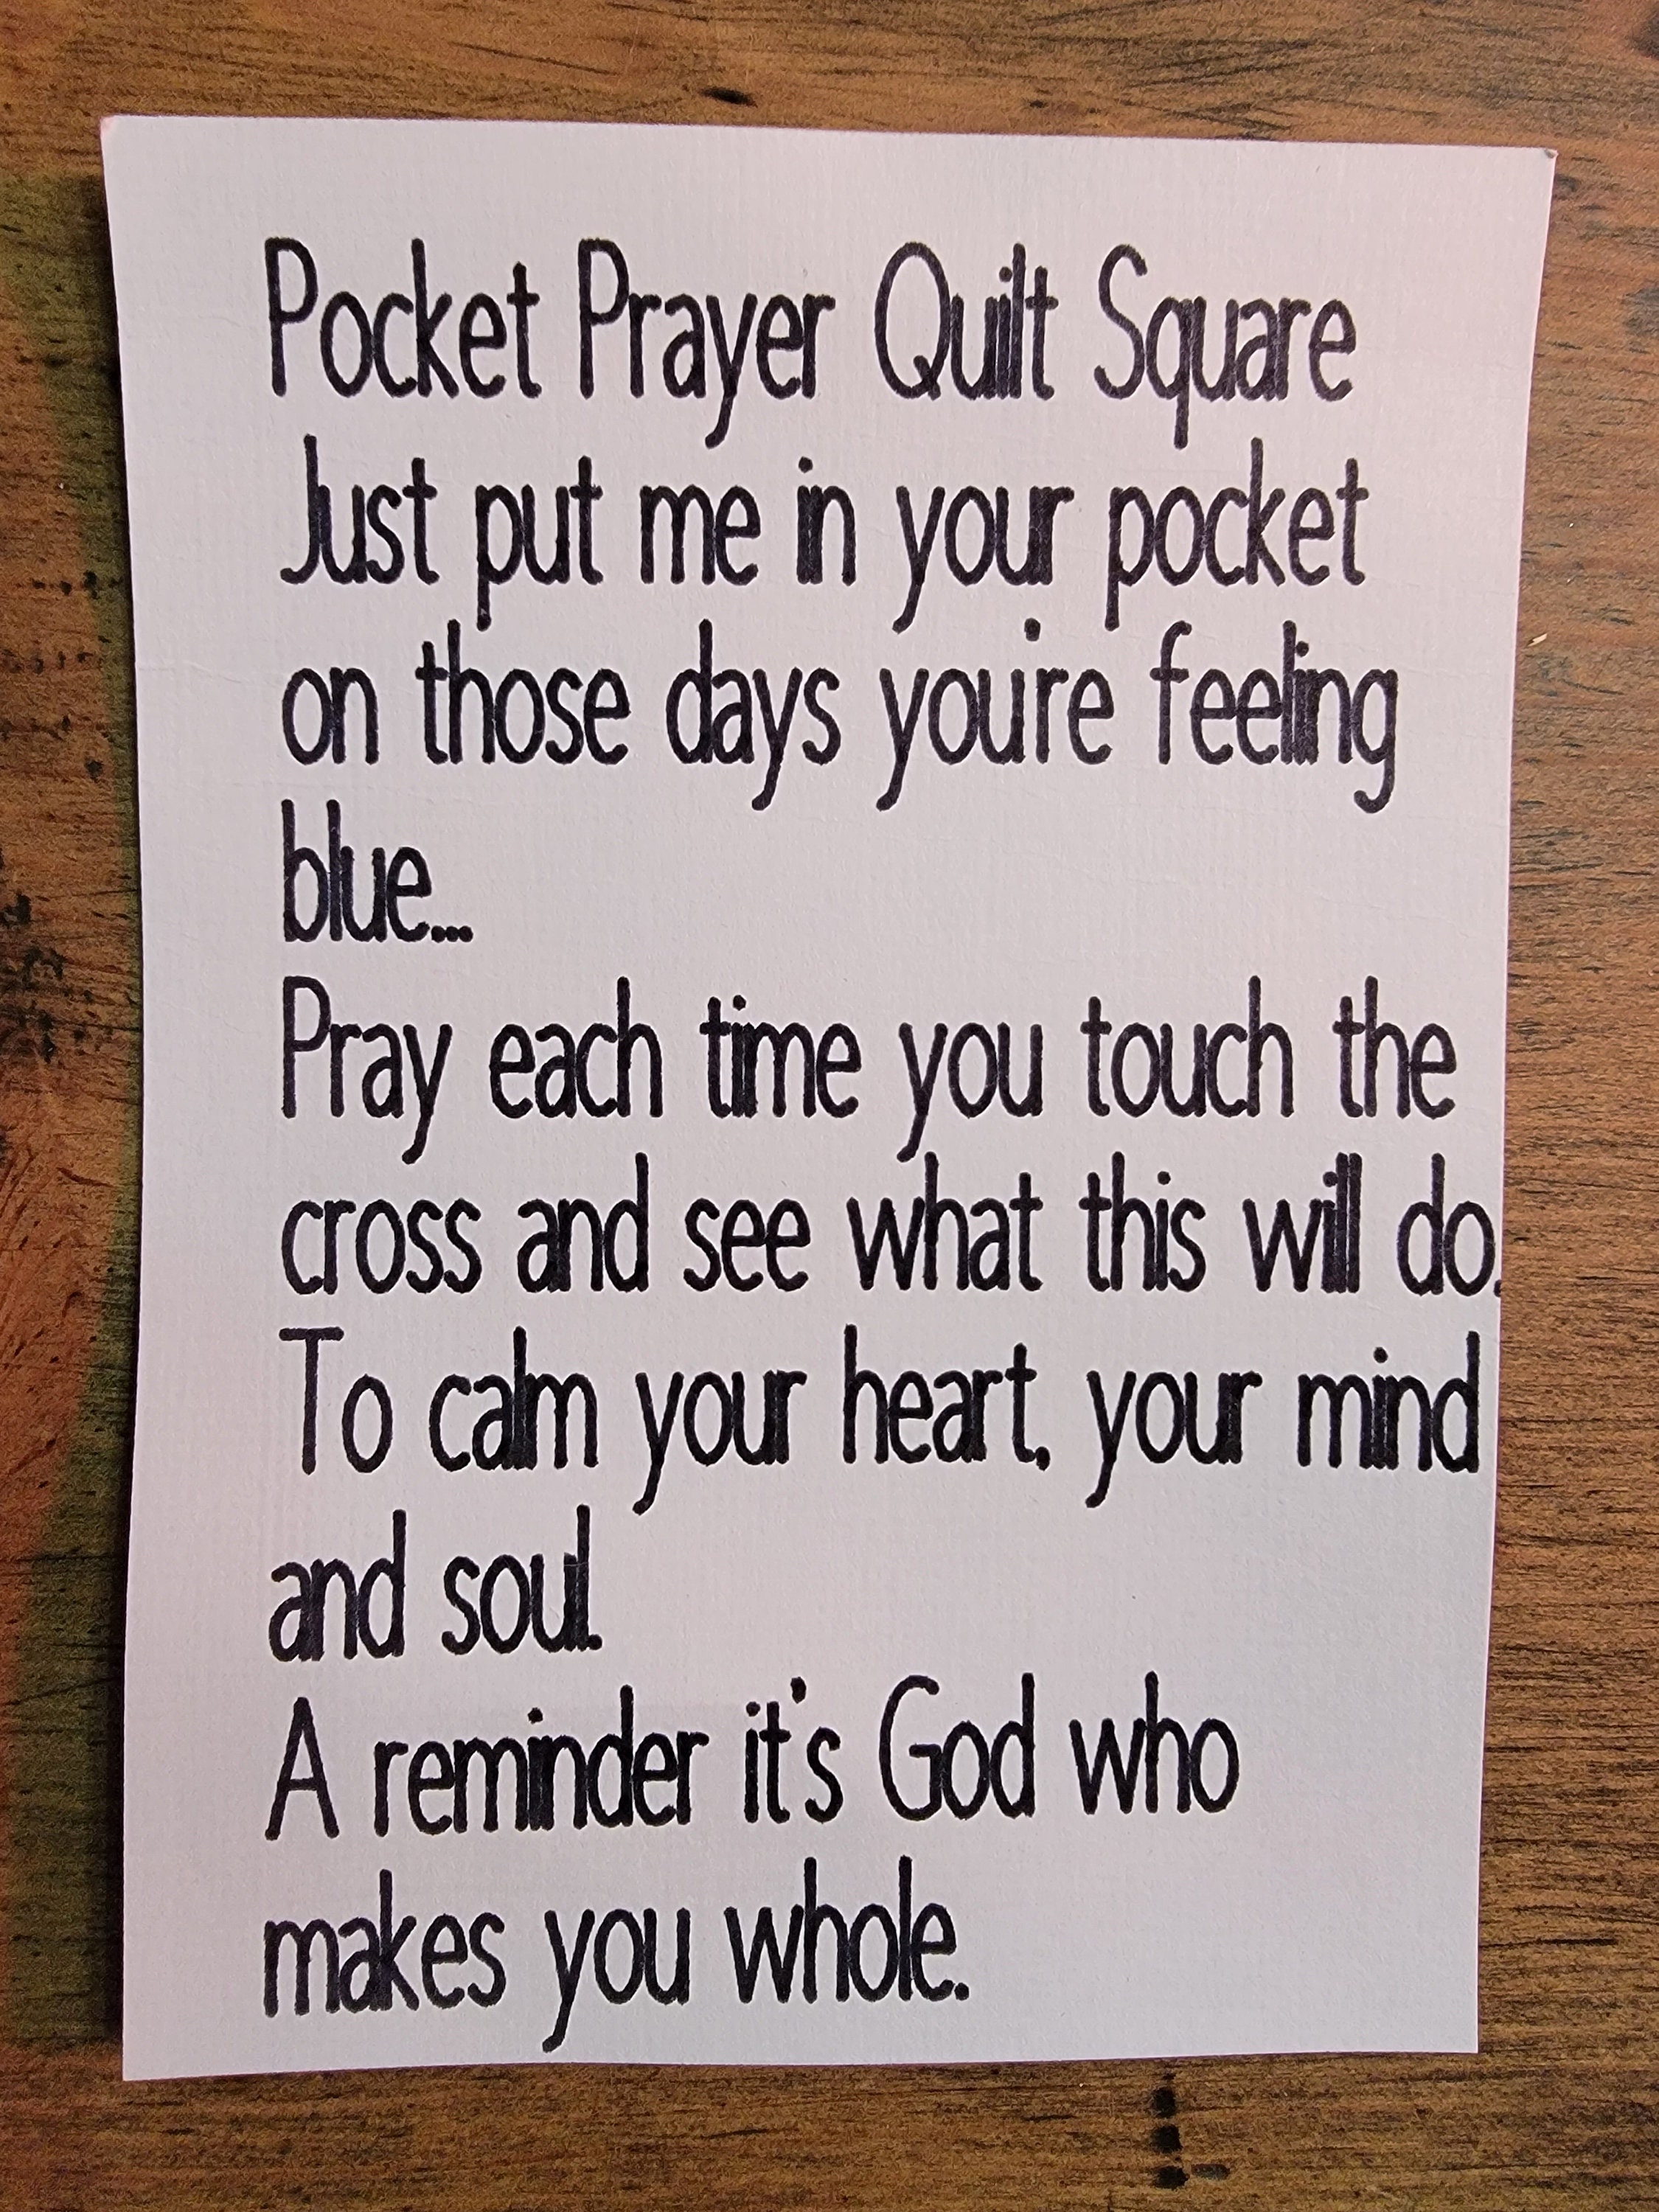 Pocket Prayer Quilt Square
Just put me in your pocket
on those days you're feeling
blue...
Pray each time you touch the
cross and see what this will do.
To calm your heart, your mind
and soul.
A reminder it's God who
makes you whole.